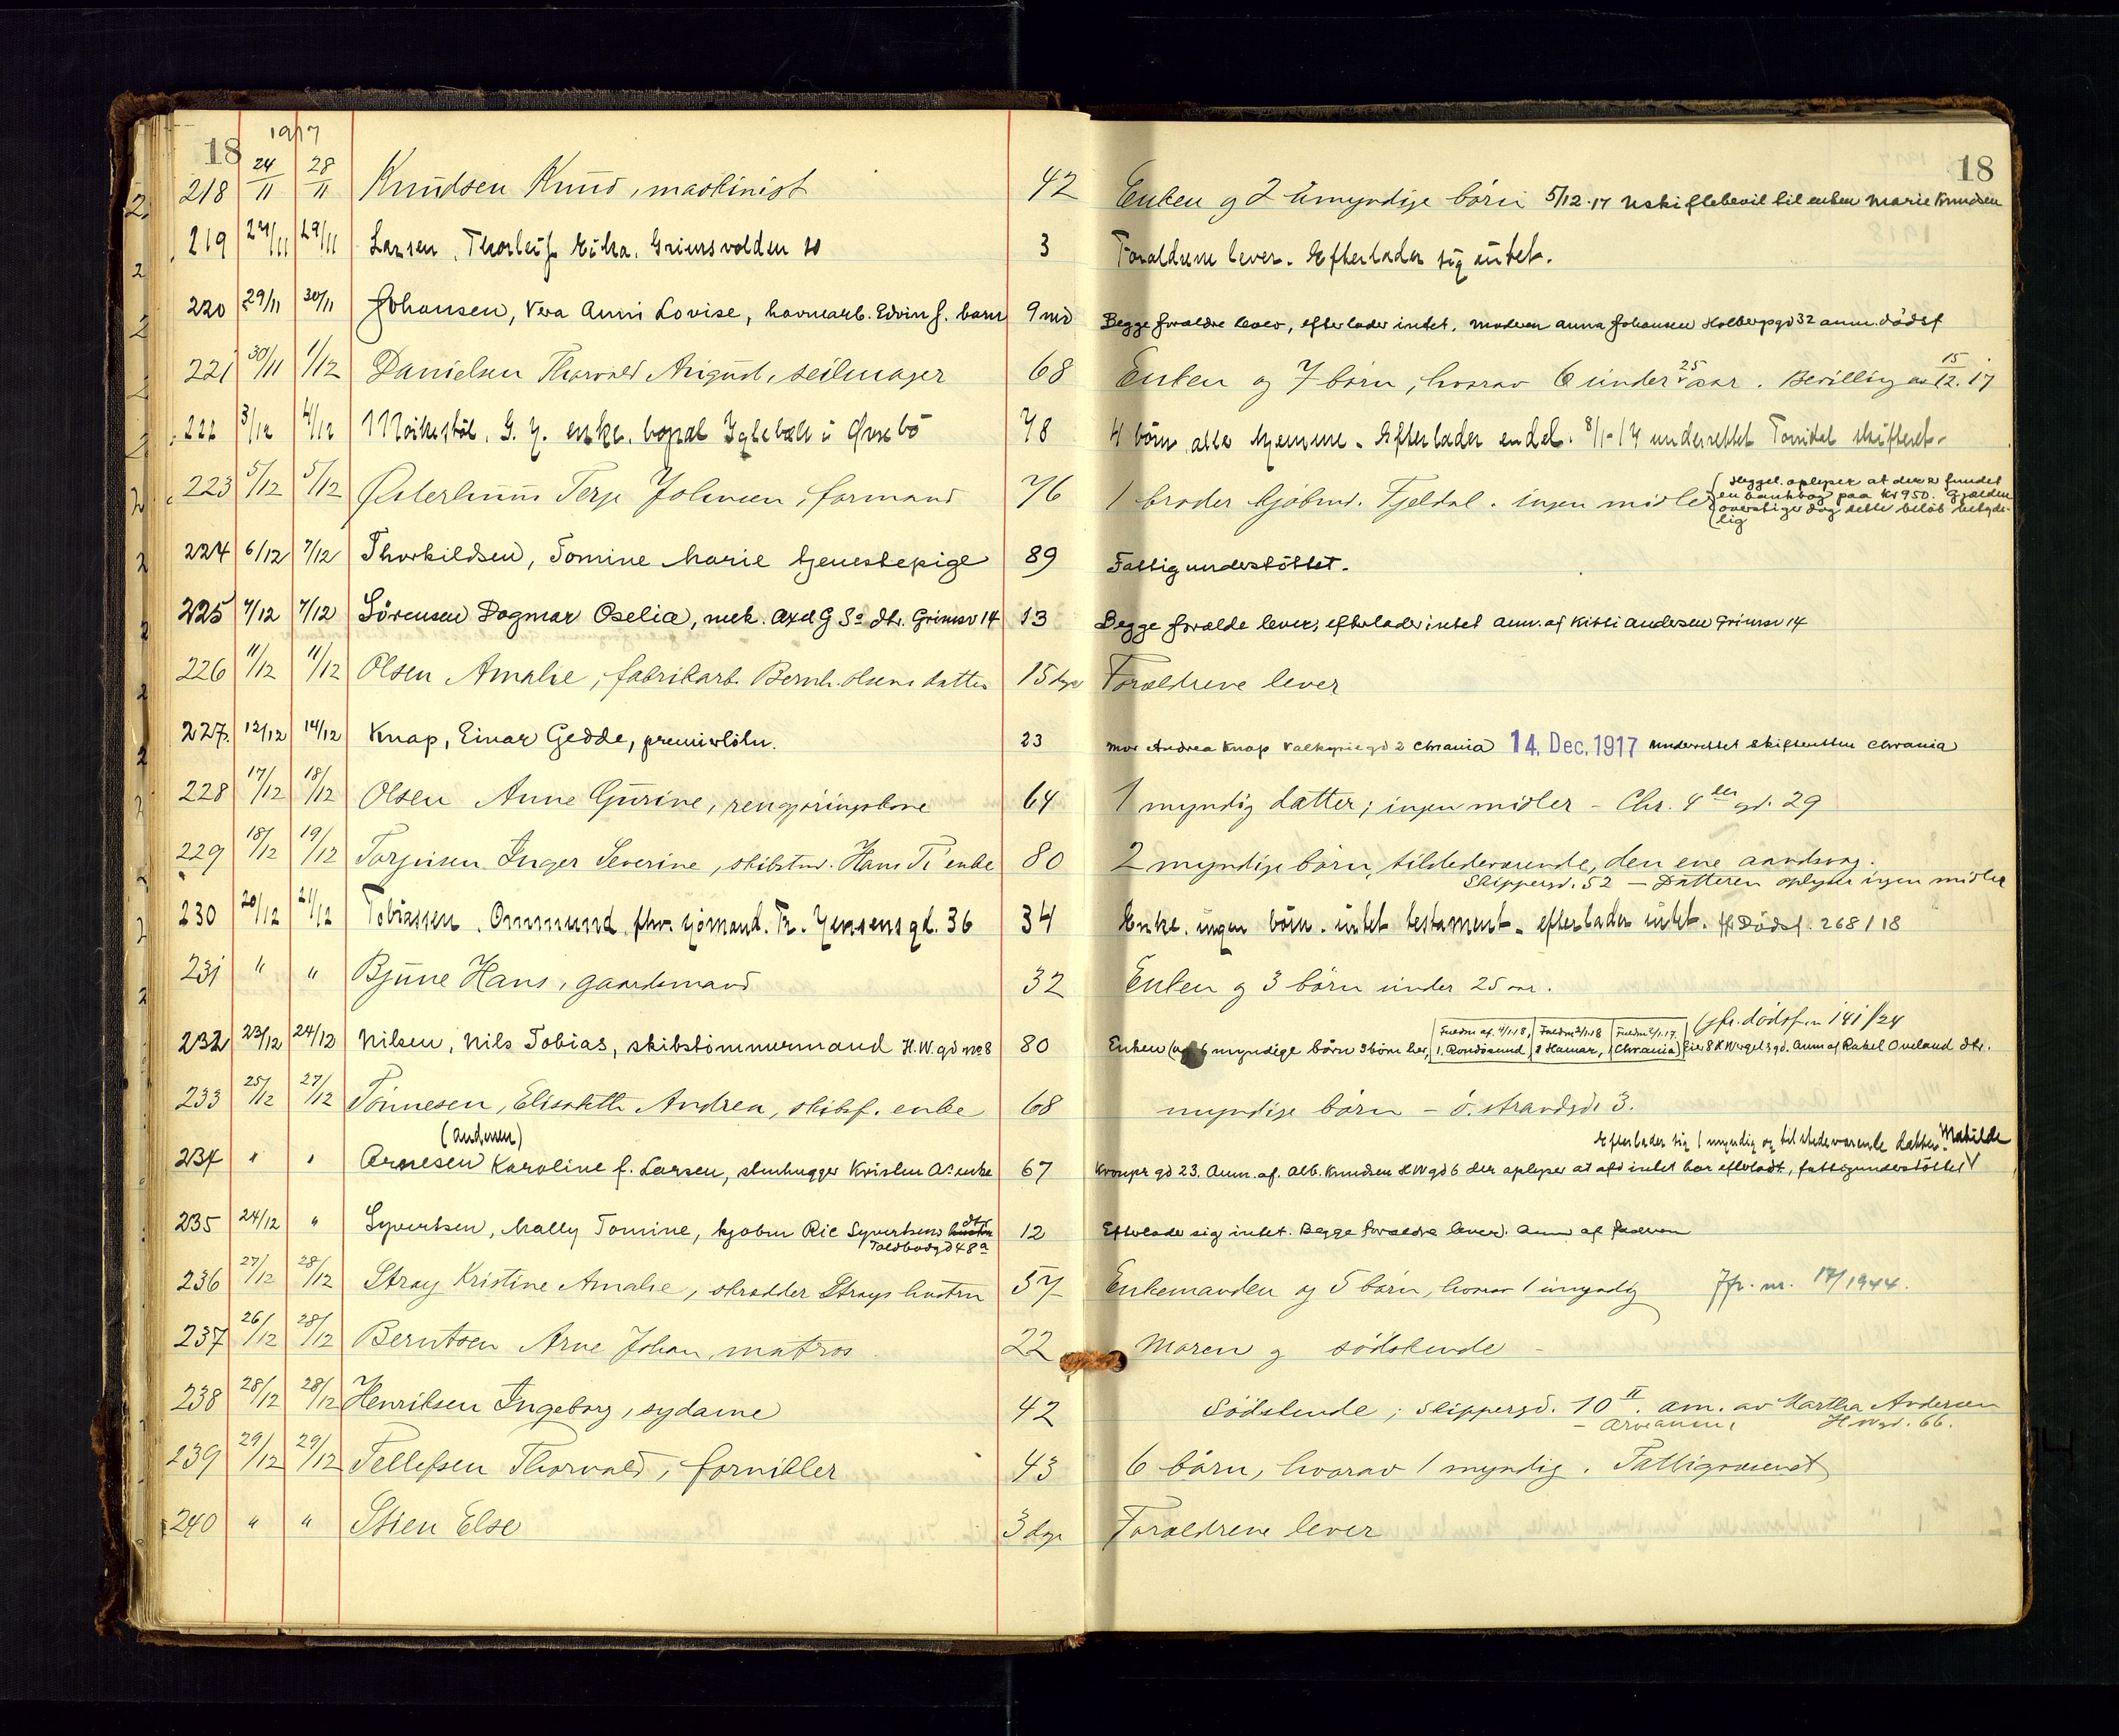 1917
18 18
218 24/11 28/11 Knudsen Knud, maskinist 42 Enken og 2 umyndige börn 5/12.17 Uskiftebevil til enken Marie Knudsen
219 27/11 29/11 Larsen, Thorleif Grimsvolden 10 3 Foraldrene lever. Efterlader sig intet.
220 29/11 30/11 Johansen, Vera Anni Lovise, havnearb. Edvin J. barn 9 md Begge foraldre lever, efterlader intet. Moderen Anna Johansen Holbergsgd 32 anm. dödsf
221 30/11 1/12 Danielsen Thorvald August, seilmager 68 Enken og 7 börn, hvorav 6 under 25 aar. Bevilling av 15/12.17
222 3/12 4/12 G. Y. enke, bopæl i Øvrebö 78 4 börn, alle hjemme. Efterlader endel. 8/1-17 underrettet Torridal skifteret.
223 5/12 5/12 Terje Johnsen, formand 76 1 broder kjöbmd. Fjeldal. ingen midler
oplyser at der er fundet
en bankbog paa Kr 950. Gjælden
overstiger dog dette belöb betyde-
lig
224 6/12 7/12 Thorkildsen, Tomine Marie tjenestepige 89 Fattigunderstöttet.
225 7/12 7/12 Sörensen Dagmar Oselia, mek. Axel G Ss dtr. Grimsv 14 13 Begge forælde lever, efterlader intet anm. af Kitti Andersen Grimsv 14
226 11/12 11/12 Olsen Amalie, fabrikarb. Bernh. Olsens datter 15 dge Foraldrene lever
227. 12/12 14/12 Knap, Einar Gedde, premierlötn. 23 mor Andrea Knap Valkyriegd 2 Chrania 14. Dec. 1917 underrettet skifteretten Chrania
228 17/12 18/12 Olsen Anne Gurine, rengjöringskone 64 1 myndig datter; ingen midler - Chr. 4des gd. 29
229 18/12 19/12 Torjusen Inger Severine, skibstmd. Hans Ts enke 80 2 myndige börn, tilstedeværende, den ene aandssvag.
Skippergd. 52 - Datteren oplyser ingen midler
230 20/12 21/12 Tobiassen, Ommund, fhv. sjömand. Th. Jensens gd. 36 34 Enke. ingen börn. intet testament. efterlader intet. jfr Dödsf. 268/18
231 " " Bjune Hans, gaardmand 32 Enken og 3 börn under 25 aar.
jfr. dödsf. n 141/24
232 23/12 24/12 Nilsen, Nils Tobias, skibstömmermand H.W.gd no 8 80 Enken 6 myndige börn 3 börn her, 1. 1 Hamar, Chrania Anm af Rakel Oveland dtr.
Fuldm af. 4/1.18, Fuldm 2/1.18
233 25/12 27/12 Tönnesen, Elisabeth Andrea, skibsf. enke 68 myndige börn - ö. strandgd. 3.
(Andersen)
Efterlader sig 1 myndig og tilstedeværende datter Matilde
234 " " Arnesen Karoline f. Larsen, stenhugger Kristen As enke 67 Kronpr gd 23. Anm. af. Alb. Knudsen HWgd 6 der oplyser at afd intet har efterladt, fattigunderstöttet
235 24/12 " Syvertsen, Mally Tomine, kjöbm Ric Syvertsens hustru dtr 12 Efterlader sig intet. Begge foraldre lever. Anm af faderen
Toldbodgd 48a
236 27/12 28/12 Stray Kristine Amalie, skrædder Strays hustru 57 Enkemanden og 5 börn, hvorav 1 umyndig Jfr. nr. 17/1944.
237 26/12 28/12 Berntsen Arne Johan, matros 22 Moren og södskende -
238 28/12 28/12 Henriksen Ingeborg, sydame 42 Södskende; Skippergd. 10 II. am. av Martha Andersen
H W gd. 66.
239 29/12 29/12 Tellefsen Thorvald, fornikler 43 6 börn, hvorav 1 myndig. Fattigvæsenet
240 " " Stien Else 3 dge Foraldrene lever